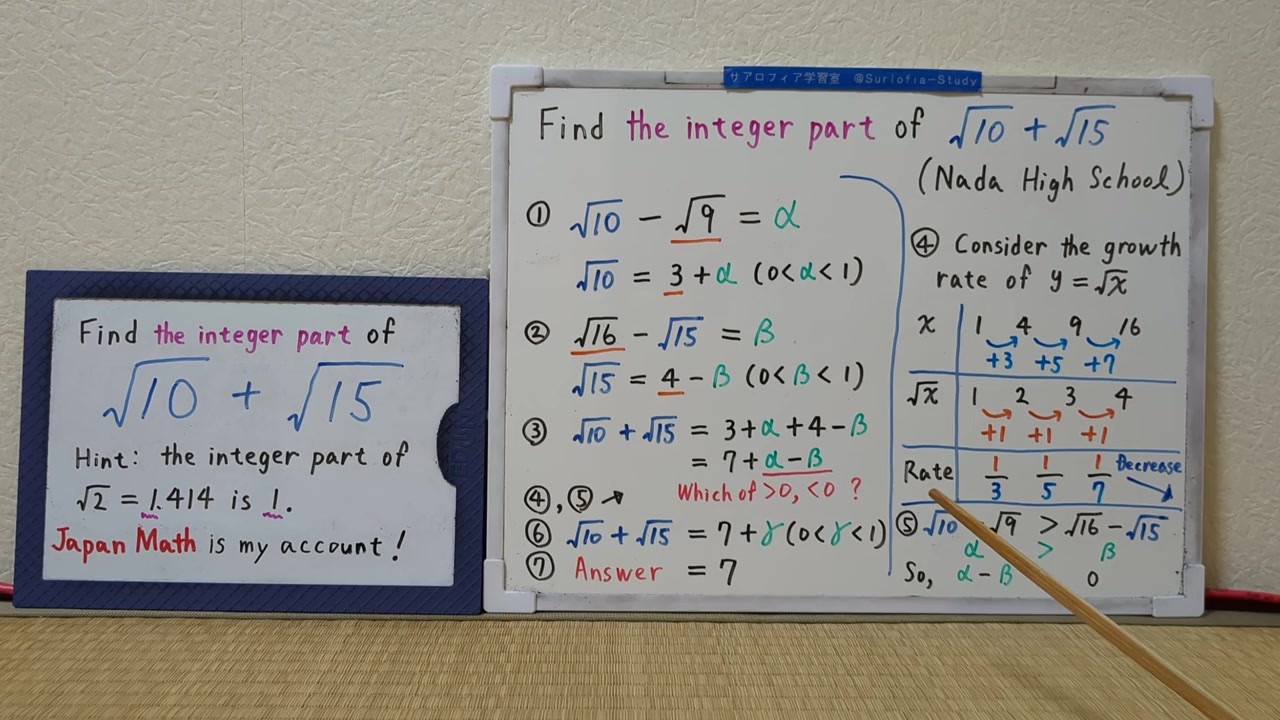 Find the integer part of
√10 + √15
Hint: the integer part of
√2 = 1.414 is 1.
Japan Math is my account!
サアロフィア学習室 @Surlofia-Study
Find the integer part of √10 + √15
(Nada High School)
① √10 - √9 = α
√10 = 3 + α (0<α<1)
② √16 - √15 = β
√15 = 4 - β (0<β<1)
③ √10 + √15 = 3+α+4-β
= 7+α-β
Which of >0, <0 ?
④, ⑤ ↗
⑥ √10 + √15 = 7+γ (0<γ<1)
⑦ Answer = 7
④ Consider the growth
rate of y = √x
x 1 4 9 16
+3 +5 +7
√x 1 2 3 4
+1 +1 +1
Rate 1/3 1/5 1/7 Decrease
⑤ √10 √9 > √16 - √15
α > β
So, α - β 0